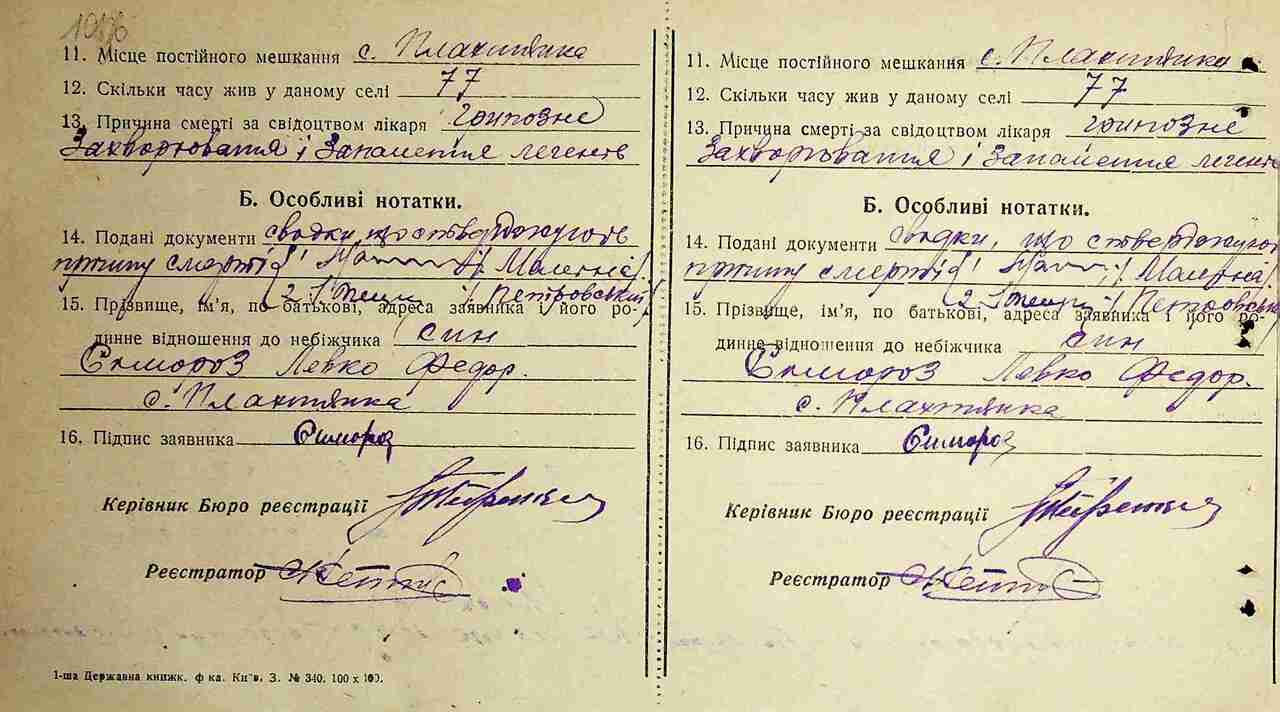 11. Місце постійного мешкання с. Плахтянка
12. Скільки часу жив у даному селі 77
13. Причина смерті за свідоцтвом лікаря грипозне
Захворювання і Запалення легенів
Б. Особливі нотатки.
14. Подані документи свадки, що стверджують
причину смерті
2. /Петровський/
15. Прізвище, ім'я, по батькові, адреса заявника і його ро-
динне відношення до небіжчика син
Симороз Левко Федор.
с. Плахтянка
16. Підпис заявника Симороз
Керівник Бюро реєстрації
Реєстратор
1-ша Державна книжк. ф-ка. Київ. З. № 340. 100 х 100.
11. Місце постійного мешкання с. Плахтянка
12. Скільки часу жив у даному селі 77
13. Причина смерті за свідоцтвом лікаря грипозне
Захворювання і Запалення легенів
Б. Особливі нотатки.
14. Подані документи свадки, що стверджують
причину смерті
2. /Петровськ
15. Прізвище, ім'я, по батькові, адреса заявника і його ро-
динне відношення до небіжчика син
Симороз Левко Федор.
с. Плахтянка
16. Підпис заявника Симороз
Керівник Бюро реєстрації
Реєстратор